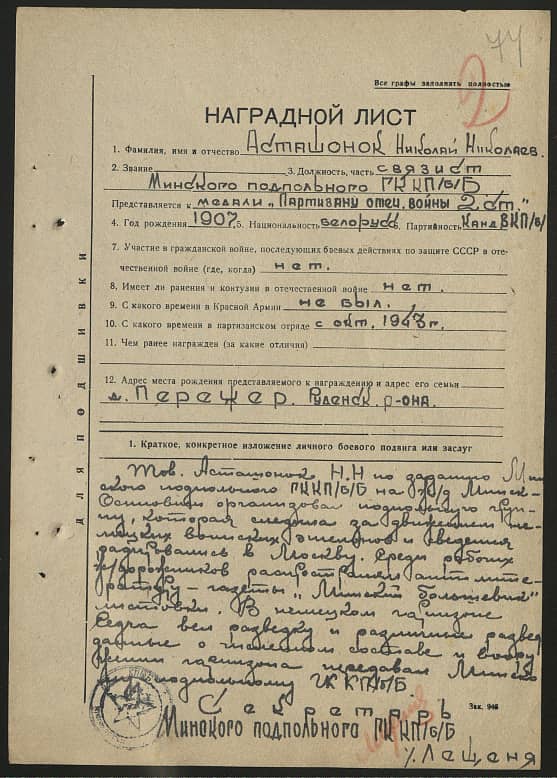 74
2
Все графы заполнять полностью
НАГРАДНОЙ ЛИСТ
1. Фамилия, имя и отчество Асташонок Николай Николаев.
2. Звание 3. Должность, часть связист
Минского подпольного ГККП/б/Б
Представляется к медали „Партизану отеч. войны 2 ст."
4. Год рождения 1907 5. Национальность белорусс 6. Партийность Канд ВКП/б/
7. Участие в гражданской войне, последующих боевых действиях по защите СССР в оте-
чественной войне (где, когда) нет.
8. Имеет ли ранения и контузии в отечественной войне нет.
9. С какого времени в Красной Армии не был.
10. С какого времени в партизанском отряде с окт. 1943 г.
11. Чем ранее награжден (за какие отличия)
12. Адрес места рождения представляемого к награждению и адрес его семьи
д. Пережер. Руденск. р-она.
ДЛЯ ПОДШИВКИ
1. Краткое, конкретное изложение личного боевого подвига или заслуг
Тов. Асташонок Н.Н по заданию Мин
ского подпольного ГККП/б/Б на ж/д Минск-
Осиповичи организовал подпольную груп-
пу, которая следила за движением не-
мецких воинских эшелонов и сведения
радировались в Москву. Среди рабочих
ж/дорожников распространял антилите-
ратуру - газеты „Минский большевик"
листовки. В немецком гарнизоне
Седча вел разведку и различные развед
данные о численном составе и воору
жении гарнизона передавал Минско
му подпольному ГККП/б/Б.
Секретарь
Зак. 946
Минского подпольного ГККП/б/Б
/Лещеня